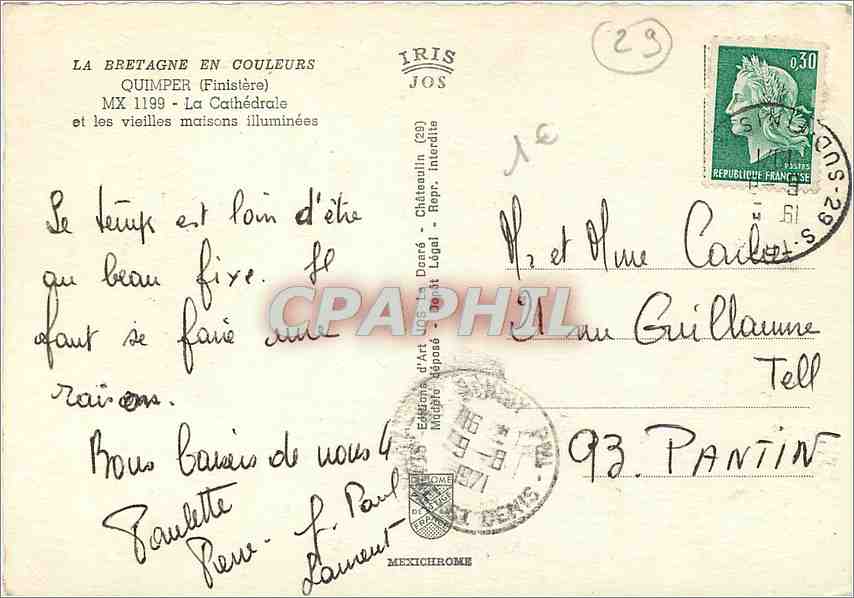 LA BRETAGNE EN COULEURS
QUIMPER (Finistère)
MX 1199 - La Cathédrale
et les vieilles maisons illuminées
IRIS
JOS
29
1€
0,30
POSTES
REPUBLIQUE FRANÇAISE
SUD-29 S.
Le temps est loin d'être
au beau fixe. Il
faut se faire une
raison.
Bons baisers de nous 4
Paulette
Pierre - J. Paul
Laurent
Editions d'Art JOS Le Doaré - Châteaulin (29)
Modèle déposé - Dépôt Légal - Repr. interdite
CPAPHIL
Mr et Mme
21 rue Guillaume
Tell
93. PANTIN
PAL
16
9-8
1971
ST DENIS
FRANCE
MEXICHROME